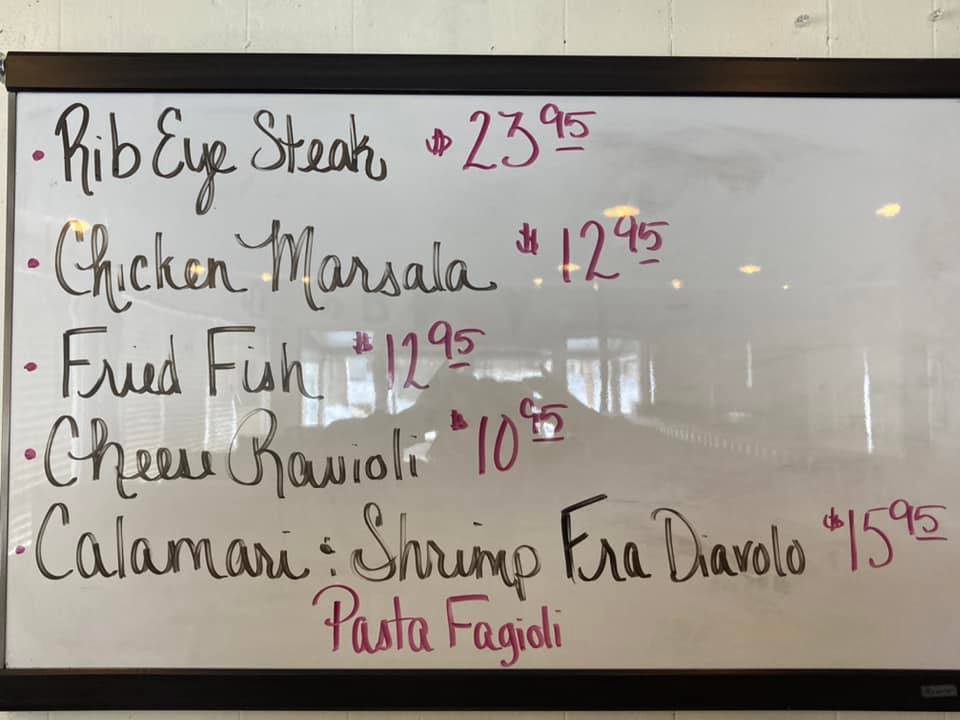 • Rib Eye Steak $23.95
• Chicken Marsala $12.95
• Fried Fish $12.95
• Cheese Ravioli $10.95
• Calamari & Shrimp Fra Diavolo $15.95
Pasta Fagioli